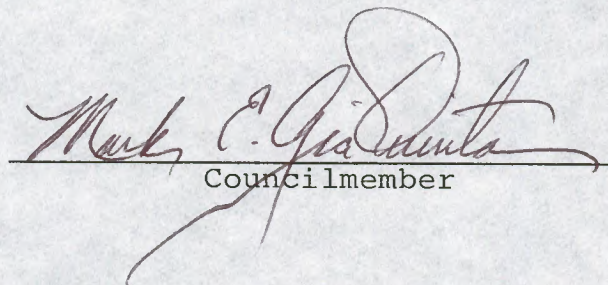 Mark E. GiaQuinta
Councilmember